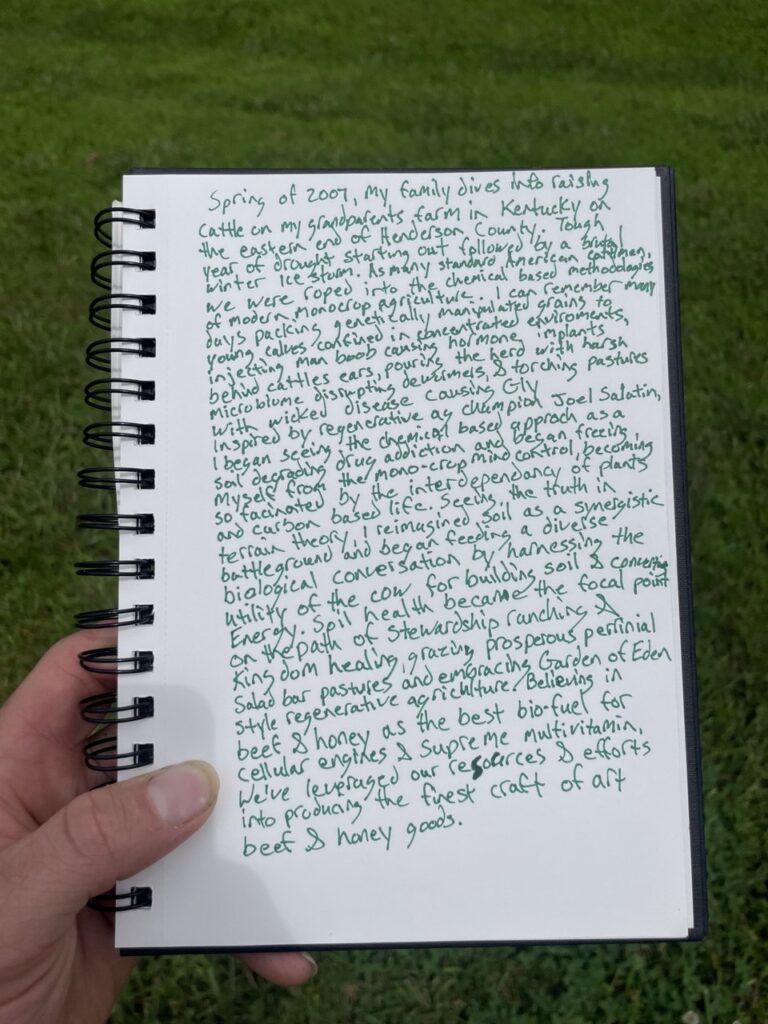 Spring of 2007, my family dives into raising
cattle on my grandparents farm in Kentucky on
the eastern end of Henderson County. Tough
year of drought starting out followed by a brutal
winter ice storm. As many standard American cattlemen,
we were roped into the chemical based methodologies
of modern monocrop agriculture. I can remember many
days packing genetically manipulated grains to
young calves confined in concentrated enviroments,
injecting man boob causing hormone implants
behind cattles ears, pouring the herd with harsh
microbiome disrupting dewormers, & torching pastures
with wicked disease causing Gly
Inspired by regenerative ag champion Joel Salatin,
I began seeing the chemical based approch as a
soil degrading drug addiction and began freeing
myself from the mono-crop mind control, becoming
so facinated by the interdependancy of plants
and carbon based life. Seeing the truth in
terrain theory, I reimagined soil as a synergistic
battleground and began feeding a diverse
biological conversation by harnessing the
utility of the cow for building soil & converting
Energy. Soil health became the focal point
on the path of Stewardship ranching &
Kingdom healing, grazing prosperous perrinial
Salad bar pastures and embracing Garden of Eden
style regenerative agriculture. Believing in
beef & honey as the best bio-fuel for
cellular engines & supreme multivitamin,
We've leveraged our resources & efforts
into producing the finest craft of art
beef & honey goods.